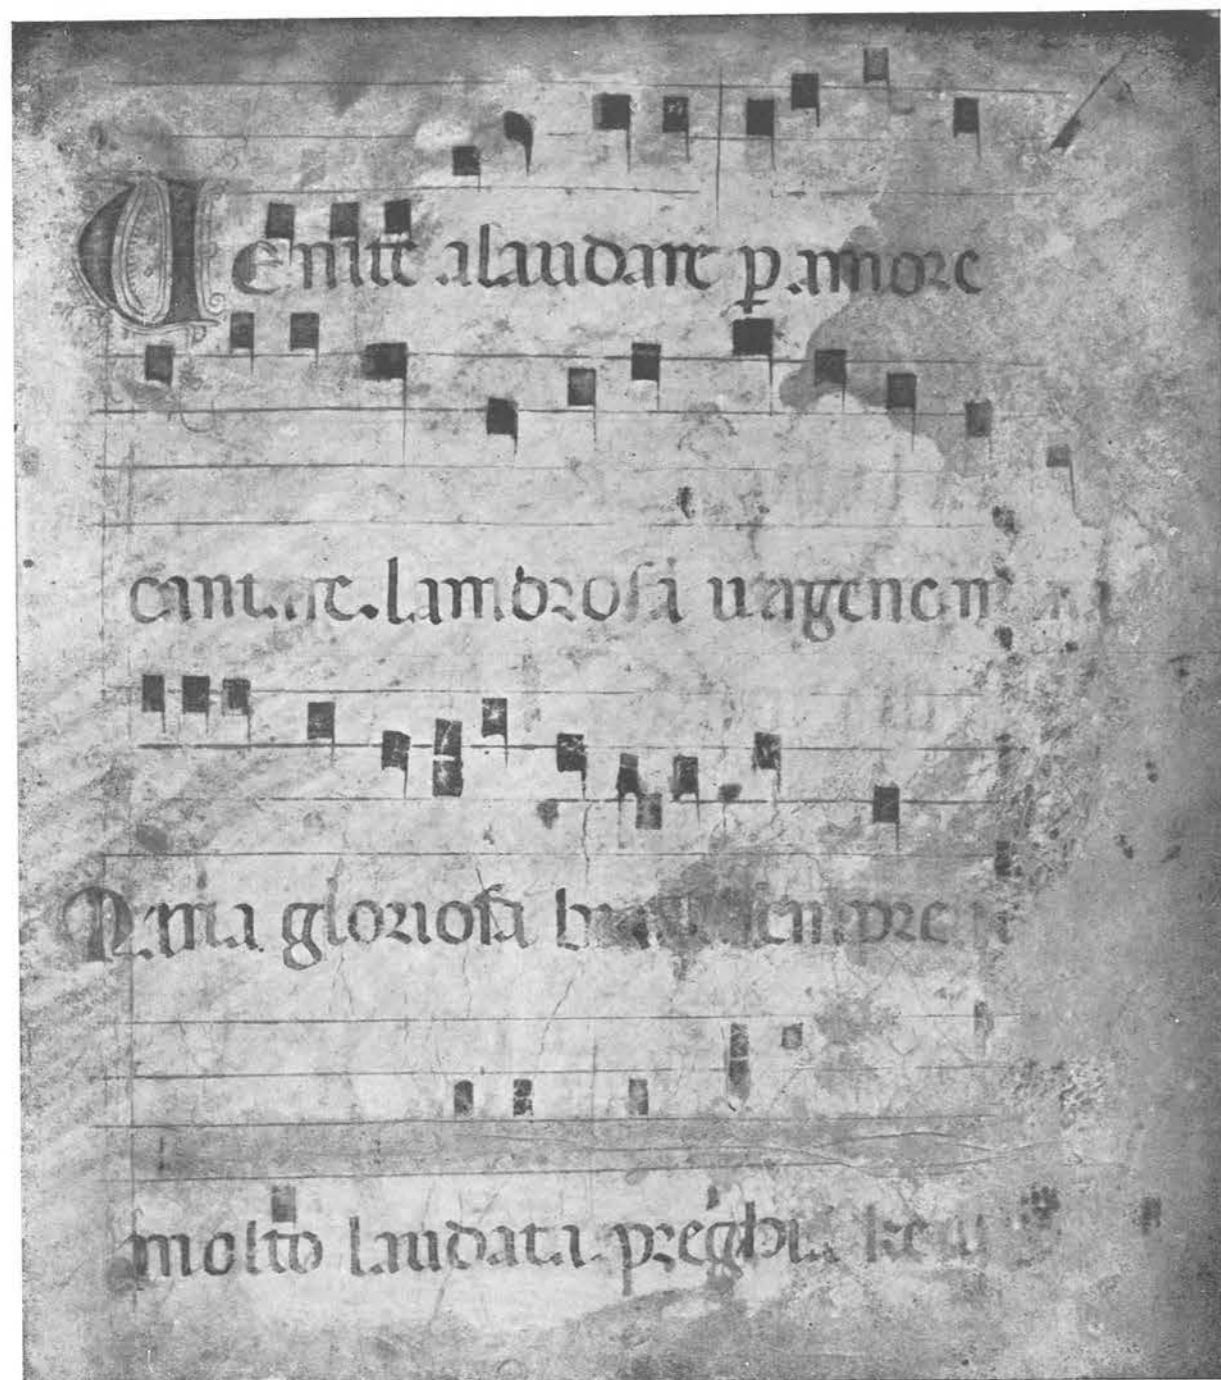 Uenite alaudare p amore
cantare. lamorosa uergene maria
Maria gloriosa sempre
molto laudata preghia